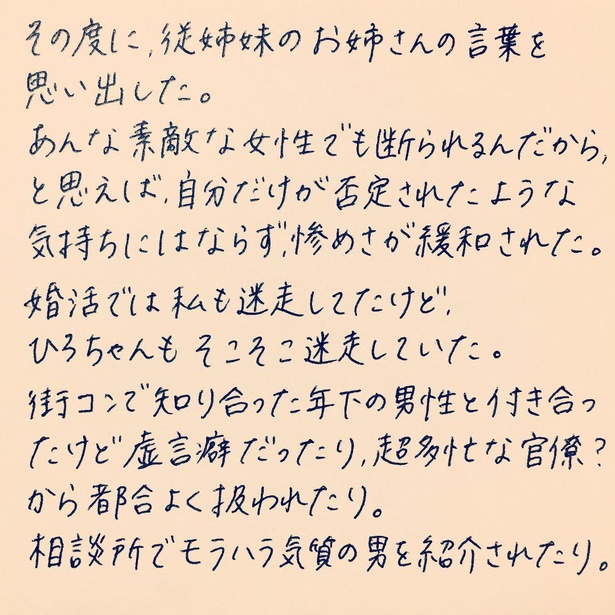 その度に、従姉妹のお姉さんの言葉を
思い出した。
あんな素敵な女性でも断られるんだから、
と思えば、自分だけが否定されたような
気持ちにはならず、惨めさが緩和された。
婚活では私も迷走してたけど、
ひろちゃんもそこそこ迷走していた。
街コンで知り合った年下の男性と付き合っ
たけど虚言癖だったり、超多忙な官僚？
から都合よく扱われたり。
相談所でモラハラ気質の男を紹介されたり。